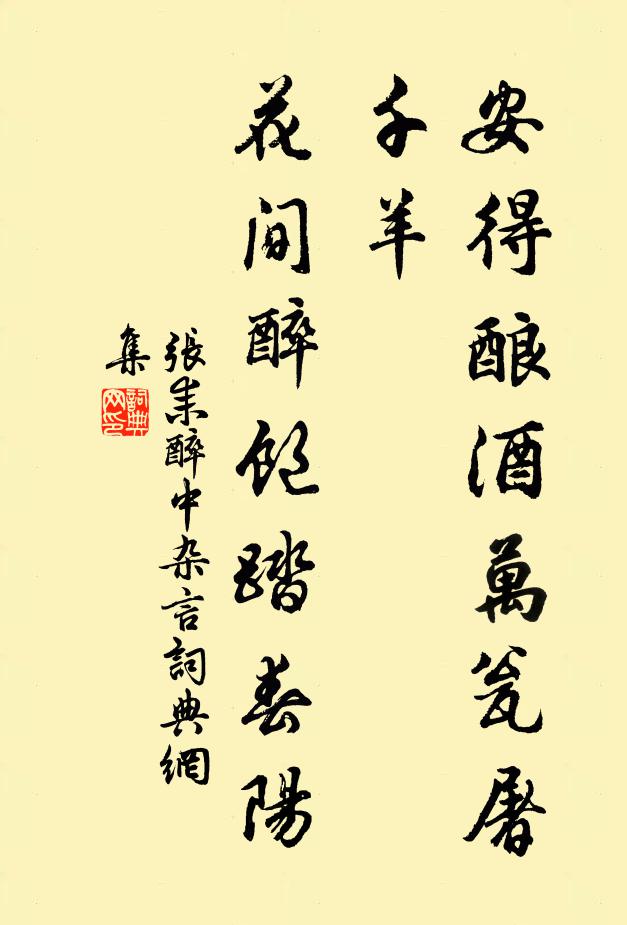 安得酿酒萬瓮屠
千羊
花间醉飽踏春陽
張耒醉中杂言詞典網
集
詞典网印